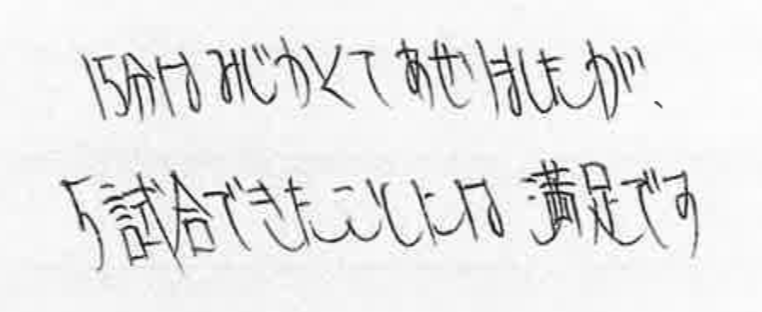 15分はみじかくてあせりはしたが、
5試合できたことには満足です